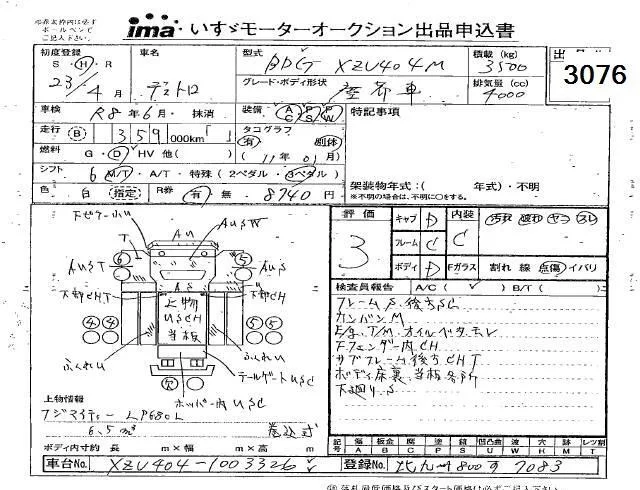 ima いすゞモーターオークション出品申込書
3076
初度登録 S・H・R 23年4月
車名 デュトロ
型式 BDG XZU404M
グレード・ボディ形状 塵芥車
積載 (kg) 3500
排気量 (cc) 4000
車検 R8年6月・抹消
装備 AC PS PW
特記事項
走行 B 359 000km
タコグラフ 有 別体
燃料 G・D・HV 他( ) (11年01月)
シフト 6 M/T・A/T・特殊(2ペダル・3ペダル)
色 白 指定 R券 有・無 8740円
架装物年式:( 年式)・不明
※不明の場合は、不明に○をする。
評価 3
キャブ D 内装 C
フレーム C
ボディ D Fガラス 割れ 線 点傷 イバリ
検査員報告 A/C( ) B/T( )
フレームS.後方SC
カンバンM
Eg.T/M.オイルベタモレ
Fフェンダー内CH
サブフレーム後方CHT
ボディ床裏.当板各所
下廻りS
AU
AUSW
AUST
AUS
下部CHT
下部CH
AS
上物USCH当板
ふくれU
ふくれU
テールゲートUSC
ホッパー内USC
上物情報
フジマイティー LP680L
6.5m³ 巻込式
ボディ内寸約 長 m×幅 m×高 m
記号 傷 A 板金 B 腐 C 塗 P 錆 S 凹凸曲 U 波 W 穴 H 跡 M レツ割 T
車台No. XZU404-1003326
登録No. 北九州800す7083